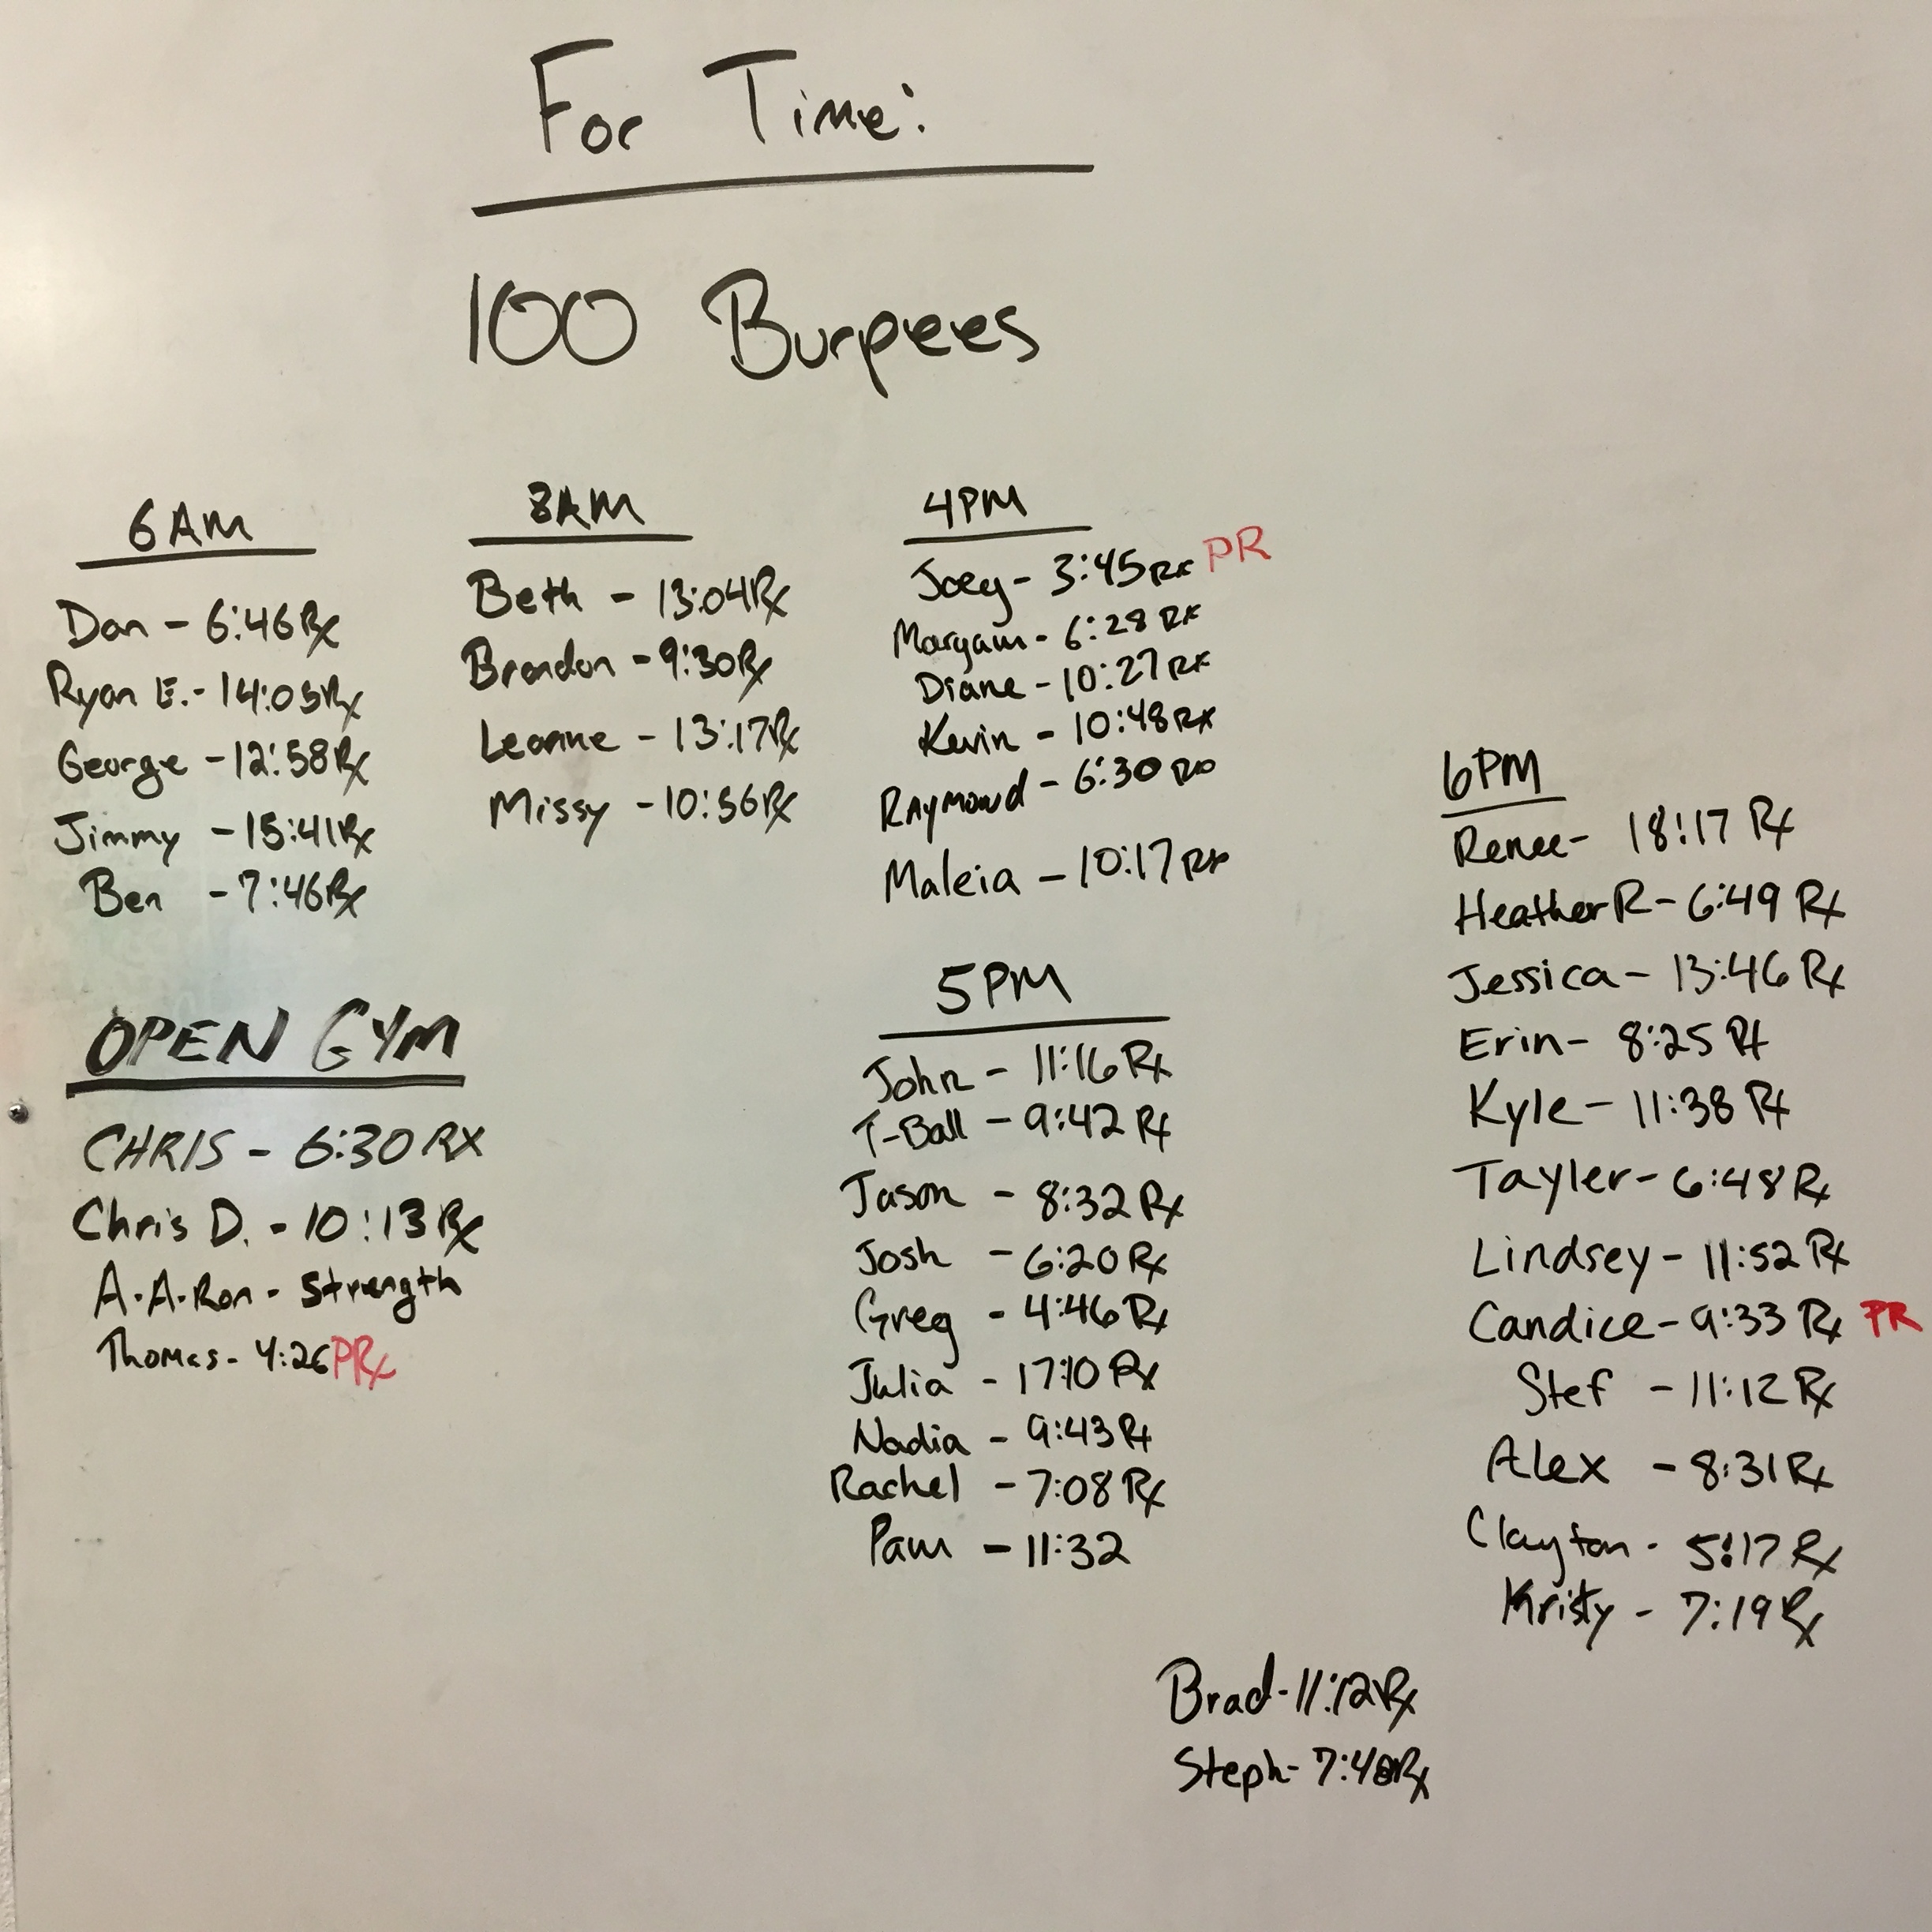 For Time:
100 Burpees
6AM
Dan - 6:46 Rx
Ryan E. - 14:05 Rx
George - 12:58 Rx
Jimmy - 15:41 Rx
Ben - 7:46 Rx
8AM
Beth - 13:04 Rx
Brandon - 9:30 Rx
Leanne - 13:17 Rx
Missy - 10:56 Rx
4PM
Joey - 3:45 Rx PR
Maryam - 6:28 Rx
Diane - 10:27 Rx
Kevin - 10:48 Rx
RAYMOND - 6:30
Maleia - 10:17 Rx
OPEN GYM
CHRIS - 6:30 RX
Chris D. - 10:13 Rx
A.A.Ron - Strength
Thomas - 4:26 PRx
5PM
John - 11:16 Rx
T-Ball - 9:42 Rx
Jason - 8:32 Rx
Josh - 6:20 Rx
Greg - 4:46 Rx
Julia - 17:10 Rx
Nadia - 9:43 Rx
Rachel - 7:08 Rx
Pam - 11:32
6PM
Renee - 18:17 Rx
Heather R - 6:49 Rx
Jessica - 13:46 Rx
Erin - 8:25 Rx
Kyle - 11:38 Rx
Tayler - 6:48 Rx
Lindsey - 11:52 Rx
Candice - 9:33 Rx PR
Stef - 11:12 Rx
Alex - 8:31 Rx
Clayton - 5:17 Rx
Kristy - 7:19 Rx
Brad - 11:12 Rx
Steph - 7:48 Rx